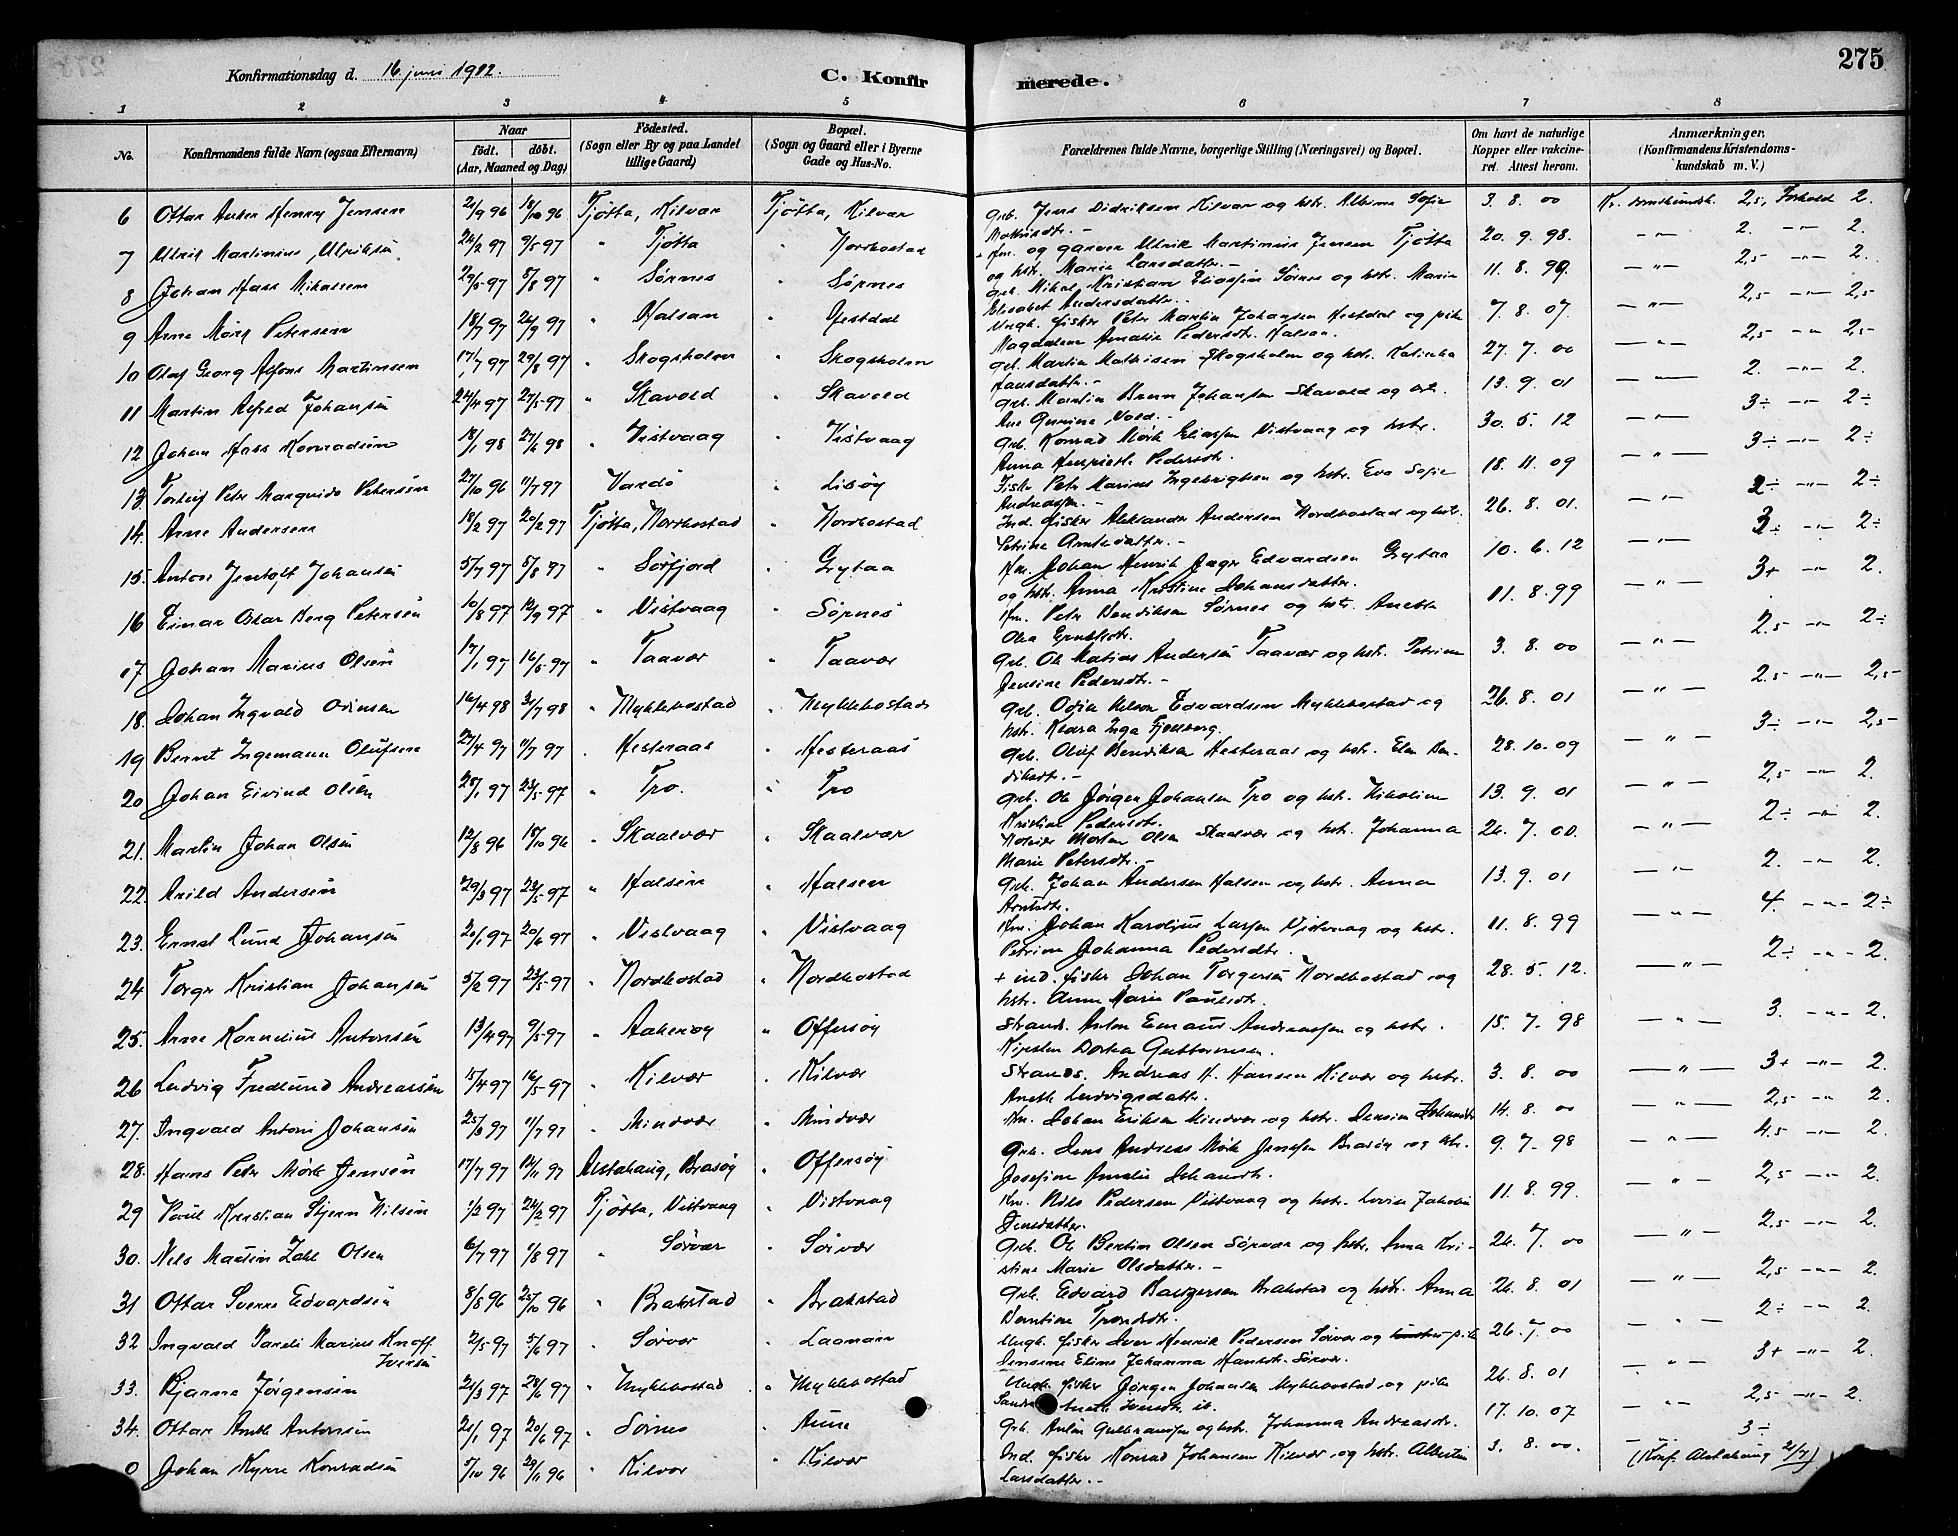 275
Konfirmationsdag d. 16 juni 1912.
C. Konfirmerede.
1 2 3 4 5 6 7 8
No. Konfirmandens fulde Navn (ogsaa Efternavn) Naar født. døbt. (Aar, Maaned og Dag) Fødested. (Sogn eller By og paa Landet tillige Gaard) Bopæl. (Sogn og Gaard eller i Byerne Gade og Hus-No. Forældrenes fulde Navne, borgerlige Stilling (Næringsvei) og Bopæl. Om havt de naturlige Kopper eller vakcineret. Attest herom. Anmærkninger. (Konfirmandens Kristendomskundskab m. V.)
6 Ottar Anker Henry Jensen 21/9 96 18/10 96 Tjøtta, Kilvær Tjøtta, Kilvær Grb. Jens Didriksen Kilvær og hstr. Albine Sofie 3. 8. 00 Kr.domskundsk. 2,5, Forhold 2.
7 Ulrik Martinius Ulriksen 24/2 97 9/5 97 " Tjøtta " Nordbostad + Km. og garver Ulrik Martinius Jensen Tjøtta og hstr. Marie Larsdatter. 20. 9. 98. — " — 2. — " — 2.
8 Johan Hass Mikalsen 29/5 97 8/8 97 " Sørnes " Sørnes Grb. Mikal Kristian Eliassen Sørnes og hstr. Marie Elisabet Andersdatter. 11. 8. 99. — " — 2,5 — " — 2.
9 Arne Mørk Petersen 18/7 97 26/9 97 " Halsan " Hestdal Ungk. fisker Peter Martin Johansen Hestdal og pike Magdalena Amalie Pedersdtr. Halsan. 7. 8. 07. — " — 2,5 — " — 2,5
10 Olaf Georg Alfons Martinsen 17/7 97 29/8 97 " Skogsholm " Skogsholm Grb. Martin Mathisen Skogsholm og hstr. Katinka Hansdatter. 27. 7. 00 — " — 2,5 — " 2,5
11 Martin Alfred Johansen 24/4 97 27/5 97 " Skavold " Skavold Grb. Martin Brun Johansen Skavold og hstr. Ane Gurine Vold. 13. 9. 01 — " — 2. — " — 2.
12 Johan Hass Konradsen 18/1 98 27/6 98 " Vistvaag " Vistvaag Grb. Konrad Mørk Eliassen Vistvaag og hstr. Anna Henriette Pedersdtr. 30. 5. 12 — " — 3÷ — " — 2÷
13. Torleif Peter Margvido Petersen 27/10 96 11/7 97 Vardø " Lisøy Fisker Peter Marius Ingebrigtsen og hstr. Eva Sofie Andreassen. 18. 11. 09 — " — 3÷ — " — 2÷
14. Arne Andersen 18/2 97 20/2 97 Tjøtta, Nordbostad " Nordbostad Ind. fisker Aleksander Andersen Nordbostad og hstr. Petrine Arntsdatter. 26. 8. 01. — " — 2÷ — " — 2÷
15. Anton Jentoft Johansen 5/7 97 8/8 97 " Sørfjord " Grytaa Km. Johan Henrik Jager Edvardsen Grytaa og hstr. Anna Kristine Johansdatter. 10. 6. 12 — " — 3÷ — " — 2÷
16 Einar Oskar Berg Petersen 10/8 97 12/9 97 " Vistvaag " Sørnes Km. Peter Bendiksen Sørnes og hstr. Anette Olea Ernstsdtr. 11. 8. 99 — " — 3+ — " — 2.
17 Johan Marius Olsen 17/1 97 16/5 97 " Taavær " Taavær Grb. Ole Matias Andersen Taavær og hstr. Petrine Jensine Pedersdtr. 3. 8. 00 — " — 2.5 — " — 2÷
18. Johan Ingvald Odinsen 16/4 98 31/7 98 " Myklebostad " Myklebostad Grb. Odin Nelson Edvardsen Myklebostad og hstr. Kedra Inga Fjelberg. 26. 8. 01 — " — 2.5 — " — 2,5
19 Bernt Ingemann Olufsen 27/4 97 11/7 97 " Hesteraas " Hesteraas Grb. Oluf Bendiksen Hesteraas og hstr. Elen Bendiksdtr. 28. 10. 09 — " — 3÷ — " — 2,5
20 Johan Eivind Olsen 28/1 97 23/5 97 " Tro. " Tro Grb. Ole Jørgen Johansen Tro og hstr. Nikoline Kristine Pedersdtr. 13. 9. 01 — " — 2,5 — " — 2.
21. Martin Johan Olsen 12/8 96 18/10 96 " Skaalvær " Skaalvær Morten Olsen Skaalvær og hstr. Johanna Marie Petersdtr. 26. 7. 00. — " — 2÷ — " — 2.
22. Arild Andersen 29/3 97 23/5 97 " Halsen " Halsen Grb. Johan Andersen Halsen og hstr. Anna Arntsdtr. 13. 9. 01 — " — 2. — " — 2.
23. Ernst Lund Johansen 20/1 97 20/6 97 " Vistvaag " Vistvaag Km. Johan Karolius Larsen Vistvaag og hstr. Petrine Johanna Pedersdtr. 11. 8. 99 — " — 4. — " — 2÷
24 Torger Kristian Johansen 5/2 97 23/5 97 " Nordbostad " Nordbostad + ind. fisker Johan Torgersen Nordbostad og hstr. Anne Marie Paulsdtr. 28. 5. 12. — " — 2÷ — " — 2.
25. Arne Kornelius Antonsen 13/4 97 9/5 97 " Aakerøy " Offersøy Strands. Anton Emaus Andreassen og hstr. Kirsten Dorthea Guttormsen. 15. 7. 98 — " — 3. — " — 2.
26 Ludvig Fredlund Andreassen 15/4 97 16/5 97 " Kilvær " Kilvær Strands. Andreas H. Hansen Kilvær og hstr. Anette Ludvigsdatter. 3. 8. 00 — " — 3+ — " — 2.
27. Ingvald Antoni Johansen 25/3 97 11/7 97 " Mindvær " Mindvær Km. Johan Eriksen Mindvær og hstr. Jensine Johansdtr. 14. 8. 00 — " — 2,5 — " — 2.
28. Hans Peter Mørk Jensen 17/7 97 14/11 97 Alstahaug, Brasøy " Offersøy Grb. Jens Andreas Mørk Jensen Brasøy og hstr. Josefine Amalie Johansdtr. 9. 7. 98 — " — 4.5 — " — 2.
29 Poul Kristian Stjern Nilsen 1/2 97 24/2 97 Tjøtta, Vistvaag " Vistvaag Km. Nils Pedersen Vistvaag og hstr. Lovise Jakobine Jensdatter. 11. 8. 99. — " — 2,5 — " — 2.
30. Nels Martin Zahl Olsen 6/7 97 1/8 97 " Sørvær " Sørvær Grb. Ole Bertin Olsen Sørvær og hstr. Anna Kristine Marie Olsdatter. 26. 7. 00 — " — 2,5 — " — 2.
31 Ottar Sverre Edvardsen 8/8 96 25/10 96 " Brakstad " Brakstad Grb. Edvard Baltzersen Brakstad og hstr. Anna Berntine Trondsdtr. 26. 8. 01 — " — 2,5 — " — 2.
32 Ingvald Pareli Marius Knoff Iversen 2/5 97 5/6 97 " Sørvær " Ungk. fisker Iver Henrik Pedersen Sørvær og pike Jensine Eline Johanna Hansdtr. Sørvær. 26. 7. 00 — " — 2÷ — " — 2.
33. Bjarne Jørgensen 21/3 97 28/6 97 " Myklebostad " Myklebostad Ungk. fisker Jørgen Johansen Myklebostad og pike Anette ib. 26. 8. 01 — " — 3+ — " — 2.
34. Ottar Arntt Antonsen 21/1 97 20/6 97 " Sørnes " Aune Grb. Anton Gulbransen og hstr. Johanna Andreasdtr. 17. 10. 07 — " — 2,5 — " — 2.
0 Johan Kyrre Konradsen 5/10 96 29/11 96 " Kilvær " Kilvær Ind. fisker Konrad Johansen Kilvær og hstr. Albertine Larsdatter. 3. 8. 00. — 3÷ (Konf. Alstahaug 2/7)